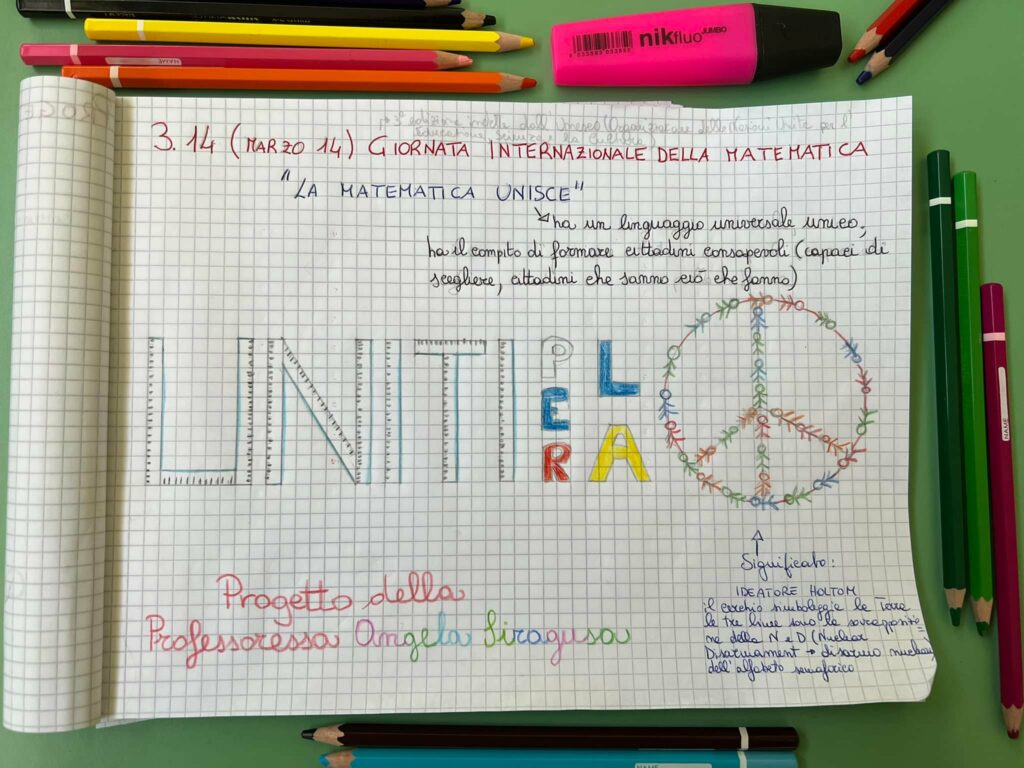 nikfluo JUMBO
8 033983 033985
NAME
3° edizione indetta dall'Unesco (Organizzazione delle Nazioni Unite per l'
Educazione, Scienza e la Cultura)
3.14 (MARZO 14) GIORNATA INTERNAZIONALE DELLA MATEMATICA
"LA MATEMATICA UNISCE"
ha un linguaggio universale unico,
ha il compito di formare cittadini consapevoli (capaci di
scegliere, cittadini che sanno ciò che fanno)
UNITI PER LA
NAME
Significato:
IDEATORE HOLTOM
il cerchio simboleggia la Terra
le tre linee sono la sovrapposizio
ne della N e D (Nuclear
Disarmament → disarmo nucleare)
dell'alfabeto semaforico
Progetto della
Professoressa Angela Siragusa